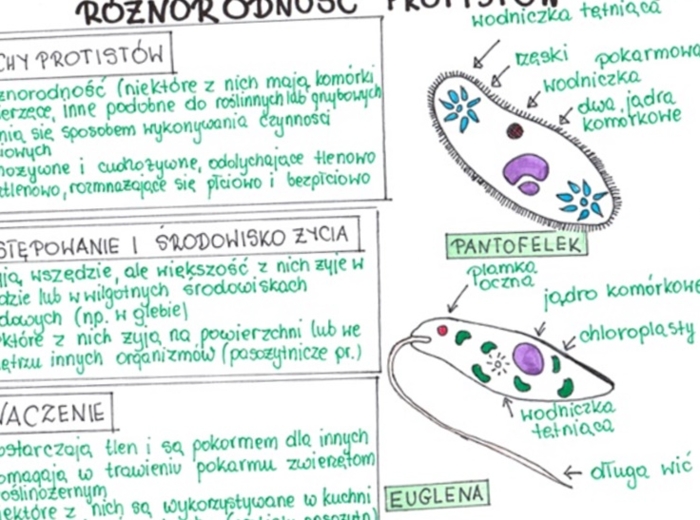 RÓŻNORODNOŚĆ PROTISTÓW
CHY PROTISTÓW
żnorodność (niektóre z nich mają komórki
ierzęce, inne podobne do roślinnych lub grzybowych
nią się sposobem wykonywania czynności
iowych
nożywne i cudzożywne, oddychające tlenowo
tlenowo, rozmnażające się płciowo i bezpłciowo
STĘPOWANIE I ŚRODOWISKO ŻYCIA
ją wszędzie, ale większość z nich żyje w
dzie lub w wilgotnych środowiskach
dowych (np. w glebie)
które z nich żyją na powierzchni lub we
ętrzu innych organizmów (pasożytnicze pr.)
NACZENIE
ostarczają tlen i są pokarmem dla innych
omagają w trawieniu pokarmu zwierzętom
oślinożernym
iektóre z nich są wykorzystywane w kuchni
wodniczka tętniąca
rzęski
pokarmowa
wodniczka
dwa jądra
komórkowe
PANTOFELEK
plamka
oczna
jądro komórkowe
chloroplasty
wodniczka
tętniąca
długa wić
EUGLENA